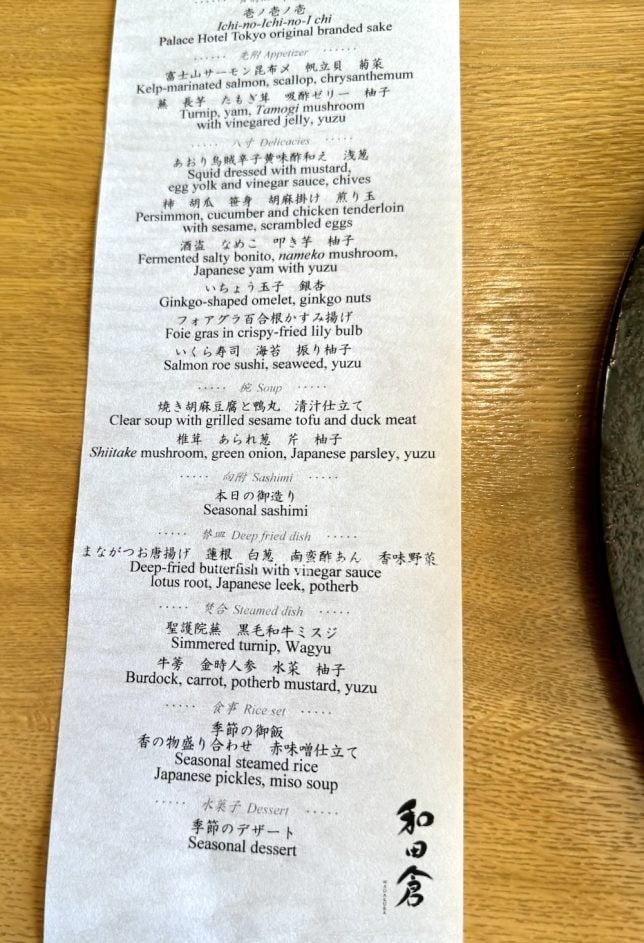 壱ノ壱ノ壱
Ichi-no-Ichi-no-I chi
Palace Hotel Tokyo original branded sake
····· 先附 Appetizer ·····
富士山サーモン昆布〆 帆立貝 菊菜
Kelp-marinated salmon, scallop, chrysanthemum
蕪 長芋 たもぎ茸 吸酢ゼリー 柚子
Turnip, yam, Tamogi mushroom
with vinegared jelly, yuzu
····· 八寸 Delicacies ·····
あおり烏賊辛子黄味酢和え 浅葱
Squid dressed with mustard,
egg yolk and vinegar sauce, chives
柿 胡瓜 笹身 胡麻掛け 煎り玉
Persimmon, cucumber and chicken tenderloin
with sesame, scrambled eggs
酒盗 なめこ 叩き芋 柚子
Fermented salty bonito, nameko mushroom,
Japanese yam with yuzu
いちょう玉子 銀杏
Ginkgo-shaped omelet, ginkgo nuts
フォアグラ百合根かすみ揚げ
Foie gras in crispy-fried lily bulb
いくら寿司 海苔 振り柚子
Salmon roe sushi, seaweed, yuzu
····· 椀 Soup ·····
焼き胡麻豆腐と鴨丸 清汁仕立て
Clear soup with grilled sesame tofu and duck meat
椎茸 あられ葱 芹 柚子
Shiitake mushroom, green onion, Japanese parsley, yuzu
····· 向附 Sashimi ·····
本日の御造り
Seasonal sashimi
····· 替皿 Deep fried dish ·····
まながつお唐揚げ 蓮根 白葱 南蛮酢あん 香味野菜
Deep-fried butterfish with vinegar sauce
lotus root, Japanese leek, potherb
····· 焚合 Steamed dish ·····
聖護院蕪 黒毛和牛ミスジ
Simmered turnip, Wagyu
牛蒡 金時人参 水菜 柚子
Burdock, carrot, potherb mustard, yuzu
····· 食事 Rice set ·····
季節の御飯
香の物盛り合わせ 赤味噌仕立て
Seasonal steamed rice
Japanese pickles, miso soup
····· 水菓子 Dessert ·····
季節のデザート
Seasonal dessert
和田倉
WADAKURA